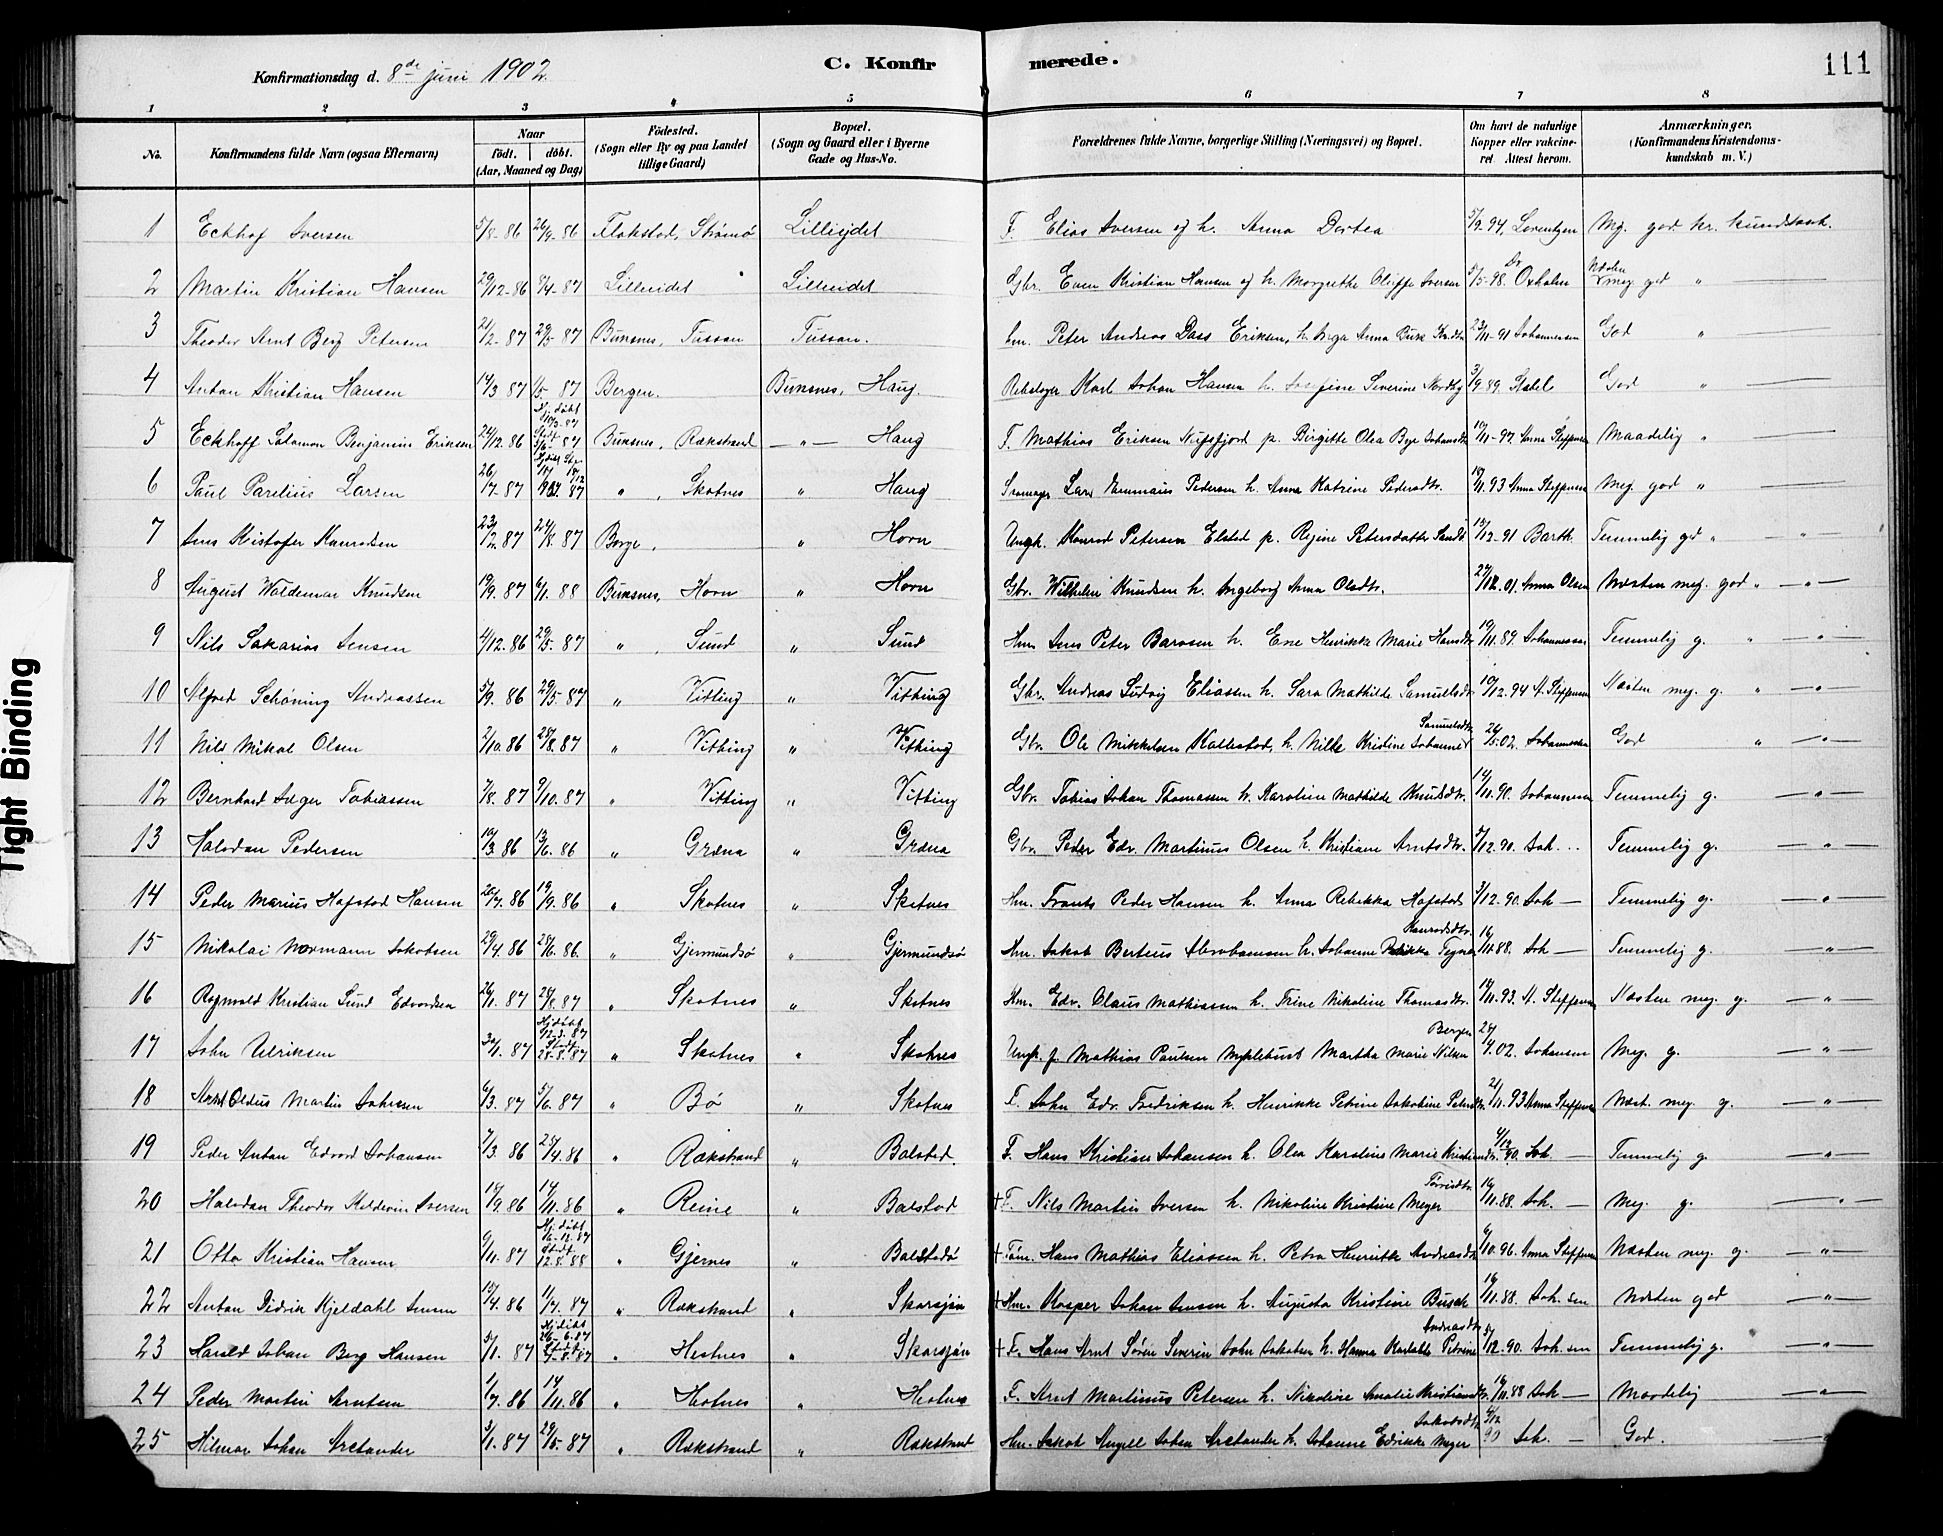 Konfirmationsdag d. 8de juni 1902
C. Konfirmerede.
111
1 2 3 4 5 6 7 8
No.
Konfirmandens fulde Navn (ogsaa Efternavn)
Naar født. døbt. (Aar, Maaned og Dag)
Födested. (Sogn eller By og paa Landet tillige Gaard)
Bopæl. (Sogn og Gaard eller i Byerne Gade og Hus-No.
Forældrenes fulde Navne, borgerlige Stilling (Næringsvei) og Bopæl.
Om havt de naturlige Kopper eller vakcineret. Attest herom.
Anmærkninger. (Konfirmandens Kristendomskundskab m. V.)
1 Eckhof Iversen 5/8-86 26/9-86 Flakstad, Strømø Lilleidet F. Elias Iversen og h. Anna Dortea 5/9.94, Lorentzen Meg. god kr. kundskab.
2 Martin Kristian Hansen 29/12-86 8/4-87 Lilleidet Lilleidet Gbr. Even Kristian Hansen og h. Margrethe Oliffe Iversen 5/5-98. Dr Oxholm Næsten meg. god "
3 Theodor Arnt Berg Petersen 21/2-87 29/5-87 Buksnes, Tussan Tussan. Peter Andreas Dass Eriksen, h. Inga Anna 23/11-91 Johannessen God "
4 Anton Kristian Hansen 14/3 87 1/5-87 Bergen. Buksnes, Haug. Rebslager Karl Johan Hansen h. Josefine Severine Nordby 3/9 89. Stabel God "
5 Eckhoff Salamon Benjamin Eriksen 24/12.86 Hj. døbt 10/3-87 Stadf. 5/6-87 Buksnes, Rækstrand —"— Haug F. Mathias Eriksen Nufsfjord p. Birgitte Olea Bye Johansdtr. 19/11-97 Anna Steffensen Maadelig "
6 Paul Parelius Larsen 26/7-87 " , Skotnes " Haug Lars Emmaus Pedersen h. Anna Katrine Pedersdtr. 18/11.93 Anna Steffensen Meg. god "
7 Jens Kristofer Konradsen 23/2.87 24/8.87 Borge. " Horn Ungk. Konrad Petersen Elsted p. Regine Petersdatter Sandt 15/12.91 Barth. Temmelig god " —"—
8 August Waldemar Knudsen 19/9.87 6/1.88 Buksnes, Horn " Horn Gbr. Wilhelm Knudsen h. Ingeborg Anna Olsdtr. 27/12.01. Anna Olsen Næsten meg. god " —"—
9 Nils Sakarias Jensen 4/12.86 29/5.87 " , Sund " Sund Hm. Jens Peter Barosen h. Ene Henrikke Marie Hansdtr 19/11.89. Johannessen Temmelig g. " —"—
10 Alfred Schøning Andreassen 5/9.86 29/5.87 " Vitting " Vitting Gbr. Andreas Ludvig Eliassen h. Sara Mathilde Samuelsdtr. 10/12.94 A. Steffensen Næsten meg. g. " —"—
11 Nils Mikal Olsen 2/10.86 28/8.87 " Vitting " Vitting Gbr. Ole Mikkelsen Kallestad, h. Nille Kristine Johanne Samuelsdtr 26/5.02. Johannessen God " —"—
12 Bernhard Jæger Tobiassen 7/8.87 9/10.87 " Vitting " Vitting Gbr. Tobias Johan Thomassen h. Karoline Mathilde Knudsdtr. 14/11.90. Johannessen Temmelig g. —"—
13 Halvdan Pedersen 19/3 86 13/6.86 " Græna " Græna Gbr. Peder Edv. Martinus Olsen h. Kristiane Arntsdtr. 5/12.90. Joh... Temmelig g. —"—
14 Peder Marius Hafstad Hansen 20/7.86 19/9.86 " Skotnes " Skotnes Hm. Frants Peder Hansen h. Anna Rebekka Hafstad 3/12.90. Joh — Temmelig g. —"—
15 Nikolai Normann Jakobsen 29/4.86 28/6.86. " Gjermundsø " Gjermundsø Hm. Jakob Berteus Abrahamsen h. Johanne Rebikka Tegner Konradsdtr. 16/11.88. Joh — Temmelig g. —"—
16 Ragnvald Kristian Sund Edvardsen 26/1.87 28/8.87 " Skotnes " Skotnes Hm. Edv. Claus Mathiassen h. Trine Nikoline Thomasdtr. 19/11.93. A. Steffensen Næsten meg. g. —"—
17 John Ulriksen 30/1.87 Hj. døbt 12-3.87 Stadf. 28.8.87 " Skotnes " Skotnes Ungk. f. Mathias Paulsen Myklebust Martha Marie Nilsen Bergen 28/4.02. Johansen Meg. g. —"—
18 Arnt Oldus Martin Johnsen 6/3.87 5/6.87 " Bø " Skotnes F. John Edv. Fredriksen h. Henrikke Petrine Jakobine Petersdtr. 21/11.93 Anna Steffensen Næst. meg. g. —"—
19 Peder Anton Edvard Johansen 7/3 86 25/4.86 " Rækstrand " Balstad. F. Hans Kristian Johansen h. Olea Karoline Marie Kristiansdtr. 4/12.90. Joh. — Temmelig g —"—
20 Halvdan Theodor Keldevin Iversen 18/9.86 14/11.86 " Reine " Balstad + F. Nils Martin Iversen h. Nikoline Kristine Meyer Tørrisdtr. 16/11.88. Joh. — Meg. g. —"—
21 Otto Kristian Hansen 6/11.87 Hj. døbt 16-12.87 Stadf. 12.8.88 " Gjernes " Balstadø + Tøm. Hans Mathias Eliassen h. Petra Henrikke Andreasdtr 6/10.96. Anna Steffensen Næsten meg. g. —"—
22 Anton Didrik Kjeldahl Jensen 15/4.86 1/7.87 " Rækstrand " Skarsjøn + Hm. Kasper Johan Jensen h. Augusta Kristine Busch 16/11.88. Joh.sen Næsten god —"—
23 Harald Johan Berg Hansen 5/1.87 Hj. døbt 26-6.87 Stadf. " Hestnes " Skarsjøn + F. Hans Arnt Søren Severin John Jakobsen h. Hanna Petrine Andreasdtr 5/12.90. Joh.sen Temmelig g. —"—
24 Peder Martin Arntsen 1/7.86 14/11.86 " Hotnes " Hotnes F. Arnt Martinus Petersen h. Nikoline Amalie Kristiansdtr. 16/11.88 Joh — Maadelig —"—
25 Hilmar Johan Arctander 3/1.87 29/5.87 " Rækstrand " Rækstrand Hm. Jakob Angell Johan Arctander h. Johanne Edrikke Meyer Jakobsdtr 4/12 90 Joh. — God.
Tight Binding